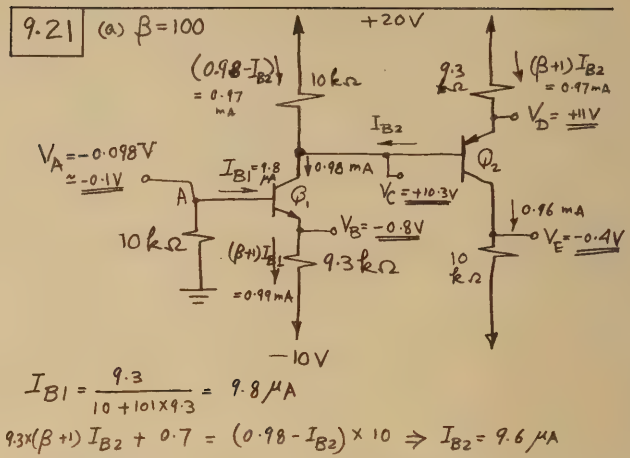 9.21 (a) β=100
+20V
(0.98-I_B2)
= 0.97
mA
10kΩ
9.3
kΩ
(β+1) I_B2
= 0.97mA
I_B2
V_D = +11V
V_A = -0.098V
≃ -0.1V
I_B1 = 9.8
μA
0.98 mA
Q_2
A
Q_1
V_C = +10.3V
0.96 mA
10kΩ
V_B = -0.8V
V_E = -0.4V
(β+1)I_B1
= 0.99mA
9.3kΩ
10
kΩ
-10V
I_B1 = 9.3 / (10 + 101×9.3) = 9.8 μA
9.3×(β+1) I_B2 + 0.7 = (0.98 - I_B2) × 10 ⇒ I_B2 = 9.6 μA